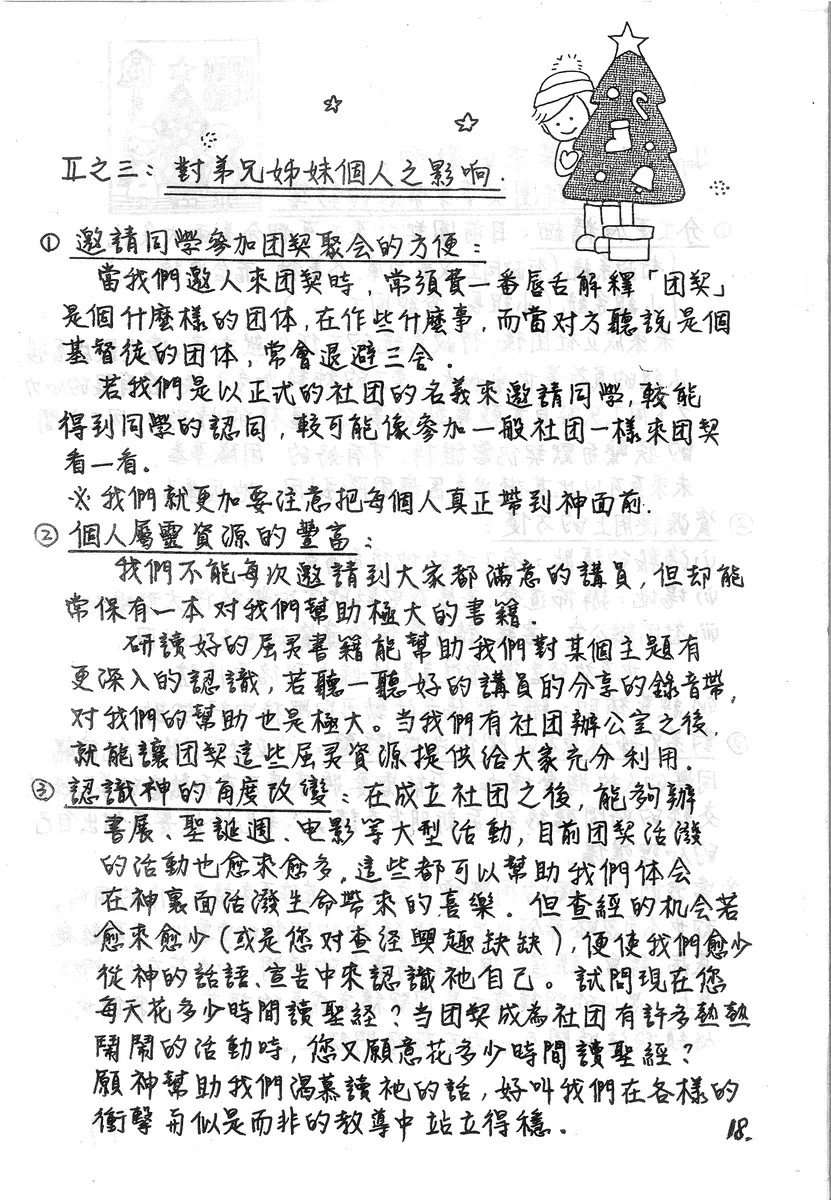 Ⅱ之三：對弟兄姊妹個人之影响．
① 邀請同學參加团契聚会的方便：
當我們邀人來团契時，常須費一番唇舌解釋「团契」
是個什麼樣的团体，在作些什麼事，而當对方聽說是個
基督徒的团体，常會退避三舍．
若我們是以正式的社团的名義來邀請同學，較能
得到同學的認同，較可能像參加一般社团一樣來团契
看一看。
※ 我們就更加要注意把每個人真正帶到神面前．
② 個人屬靈資源的豐富：
我們不能每次邀請到大家都滿意的講員，但却能
常保有一本对我們幫助極大的書籍．
研讀好的屈灵書籍能幫助我們對某個主題有
更深入的認識，若聽一聽好的講員的分享的錄音帶，
对我們的幫助也是極大。当我們有社团辦公室之後，
就能讓团契這些屈灵資源提供給大家充分利用．
③ 認識神的角度改變：在成立社团之後，能夠辦
書展、聖誕週、电影等大型活動，目前团契活潑
的活動也愈來愈多。這些都可以幫助我們体会
在神裏面活潑生命帶來的喜樂．但查經的机会若
愈來愈少（或是您对查经興趣缺缺），便使我們愈少
從神的話語、宣告中來認識祂自己。試問現在您
每天花多少時間讀聖經？当团契成為社团有許多熱熱
鬧鬧的活動時，您又願意花多少時間讀聖經？
願神幫助我們渴慕讀祂的話，好叫我們在各樣的
衝擊再似是而非的教導中站立得穩．
18.